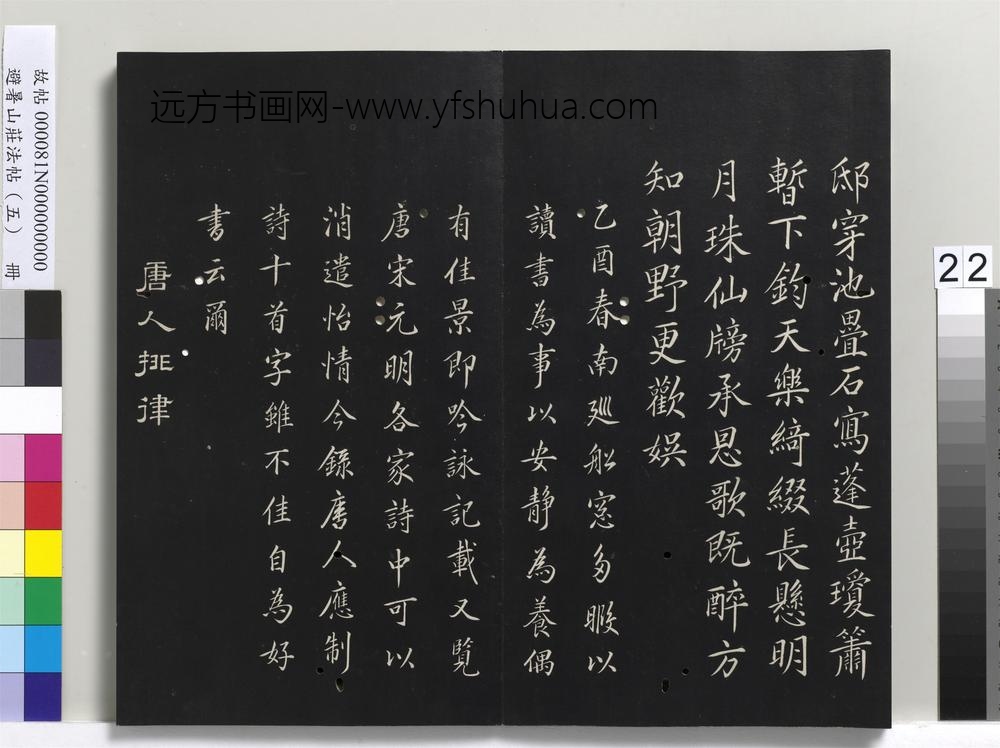 远方书画网-www.yfshuhua.com
邸穿池疊石寫蓬壺瓊簫
暫下鈞天樂綺綴長懸明
月珠仙牓承恩歌既醉方
知朝野更歡娛
乙酉春南廵船窓多暇以
讀書為事以安静為養偶
有佳景即吟詠記載又覽
唐宋元明各家詩中可以
消遣怡情今錄唐人應制
詩十首字雖不佳自為好
書云爾
唐人排律
故帖000081N000000000
避暑山莊法帖（五） 冊
22